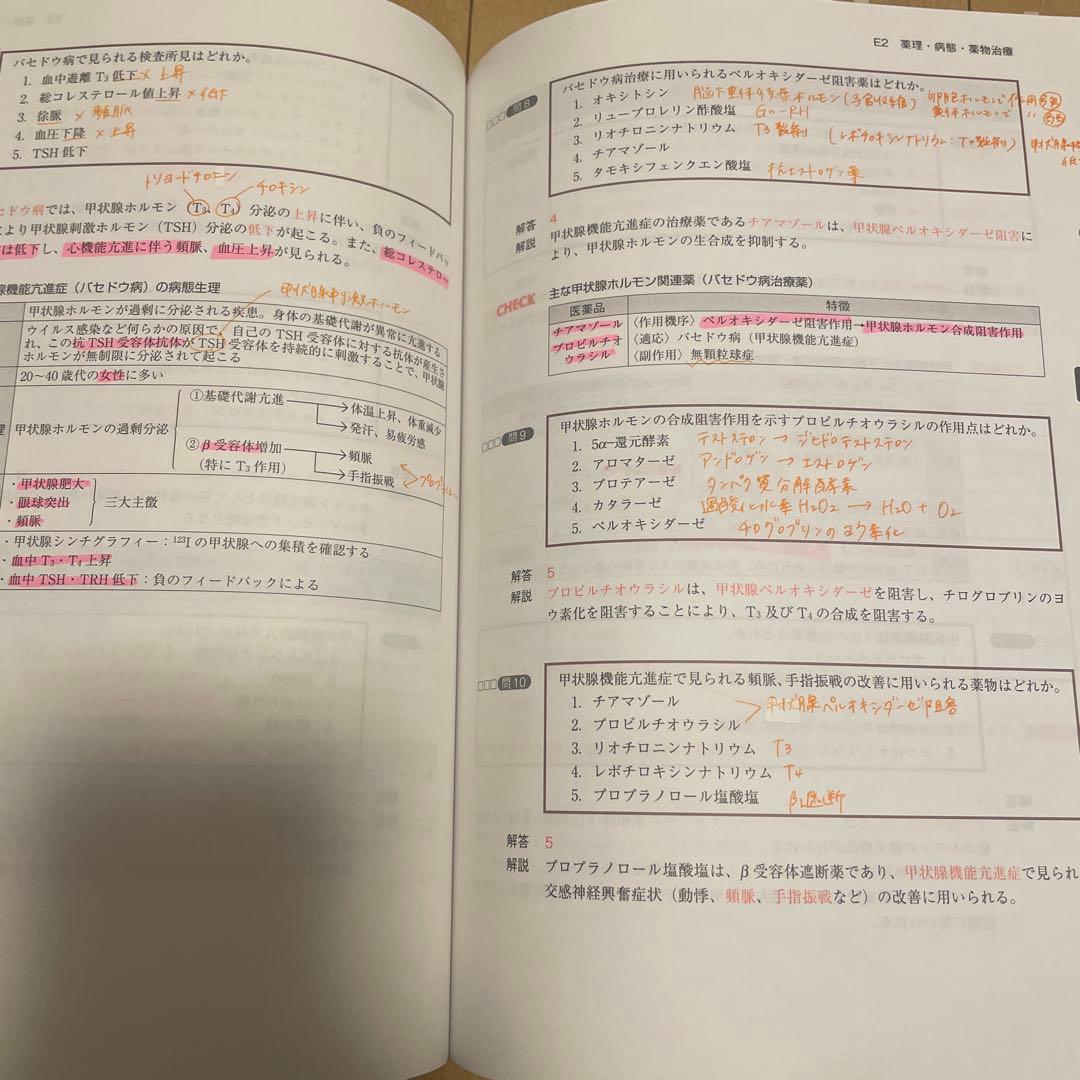 バセドウ病で見られる検査所見はどれか。
1. 血中遊離 T₃ 低下 × 上昇
2. 総コレステロール値上昇 × 低下
3. 徐脈 × 頻脈
4. 血圧下降 × 上昇
5. TSH 低下
トリヨードチロニン チロキシン
セドウ病では、甲状腺ホルモン(T₃、T₄)分泌の上昇に伴い、負のフィードバッ
により甲状腺刺激ホルモン(TSH)分泌の低下が起こる。また、総コレステロー
は低下し、心機能亢進に伴う頻脈、血圧上昇が見られる。
腺機能亢進症(バセドウ病)の病態生理
甲状腺刺激ホルモン
甲状腺ホルモンが過剰に分泌される疾患。身体の基礎代謝が異常に亢進する
ウイルス感染など何らかの原因で、自己の TSH 受容体に対する抗体が産生さ
れ、この抗 TSH 受容体抗体が TSH 受容体を持続的に刺激することで、甲状腺
ホルモンが無制限に分泌されて起こる
20〜40 歳代の女性に多い
理
甲状腺ホルモンの過剰分泌
①基礎代謝亢進
体温上昇、体重減少
発汗、易疲労感
②β受容体増加
(特に T₃ 作用)
頻脈
手指振戦
・甲状腺肥大
・眼球突出
・頻脈
三大主徴
・甲状腺シンチグラフィー:¹²³I の甲状腺への集積を確認する
・血中 T₃・T₄ 上昇
・血中 TSH・TRH 低下:負のフィードバックによる
E2 薬理・病態・薬物治療
□□□問8
バセドウ病治療に用いられるペルオキシダーゼ阻害薬はどれか。
1. オキシトシン 脳下垂体後葉ホルモン(子宮収縮) 卵胞ホルモンで作用
黄体ホルモンで 〃
2. リュープロレリン酢酸塩 Gn-RH
3. リオチロニンナトリウム T3製剤 (レボチロキシンナトリウム:T4製剤)
4. チアマゾール
5. タモキシフェンクエン酸塩 抗エストロゲン薬
解答 4
解説 甲状腺機能亢進症の治療薬であるチアマゾールは、甲状腺ペルオキシダーゼ阻害に
より、甲状腺ホルモンの生合成を抑制する。
CHECK 主な甲状腺ホルモン関連薬(バセドウ病治療薬)
医薬品 特徴
チアマゾール
プロピルチオ
ウラシル
〈作用機序〉ペルオキシダーゼ阻害作用→甲状腺ホルモン合成阻害作用
〈適応〉バセドウ病(甲状腺機能亢進症)
〈副作用〉無顆粒球症
□□□問9
甲状腺ホルモンの合成阻害作用を示すプロピルチオウラシルの作用点はどれか。
1. 5α−還元酵素 テストステロン → ジヒドロテストステロン
2. アロマターゼ アンドロゲン → エストロゲン
3. プロテアーゼ タンパク質分解酵素
4. カタラーゼ 過酸化水素 H2O2 → H2O + O2
5. ペルオキシダーゼ チログロブリンのヨウ素化
解答 5
解説 プロピルチオウラシルは、甲状腺ペルオキシダーゼを阻害し、チログロブリンのヨ
ウ素化を阻害することにより、T₃ 及び T₄ の合成を阻害する。
□□□問10
甲状腺機能亢進症で見られる頻脈、手指振戦の改善に用いられる薬物はどれか。
1. チアマゾール
甲状腺ペルオキシダーゼ阻害
2. プロピルチオウラシル
3. リオチロニンナトリウム T3
4. レボチロキシンナトリウム T4
5. プロプラノロール塩酸塩 β遮断
解答 5
解説 プロプラノロール塩酸塩は、β受容体遮断薬であり、甲状腺機能亢進症で見られ
交感神経興奮症状(動悸、頻脈、手指振戦など)の改善に用いられる。